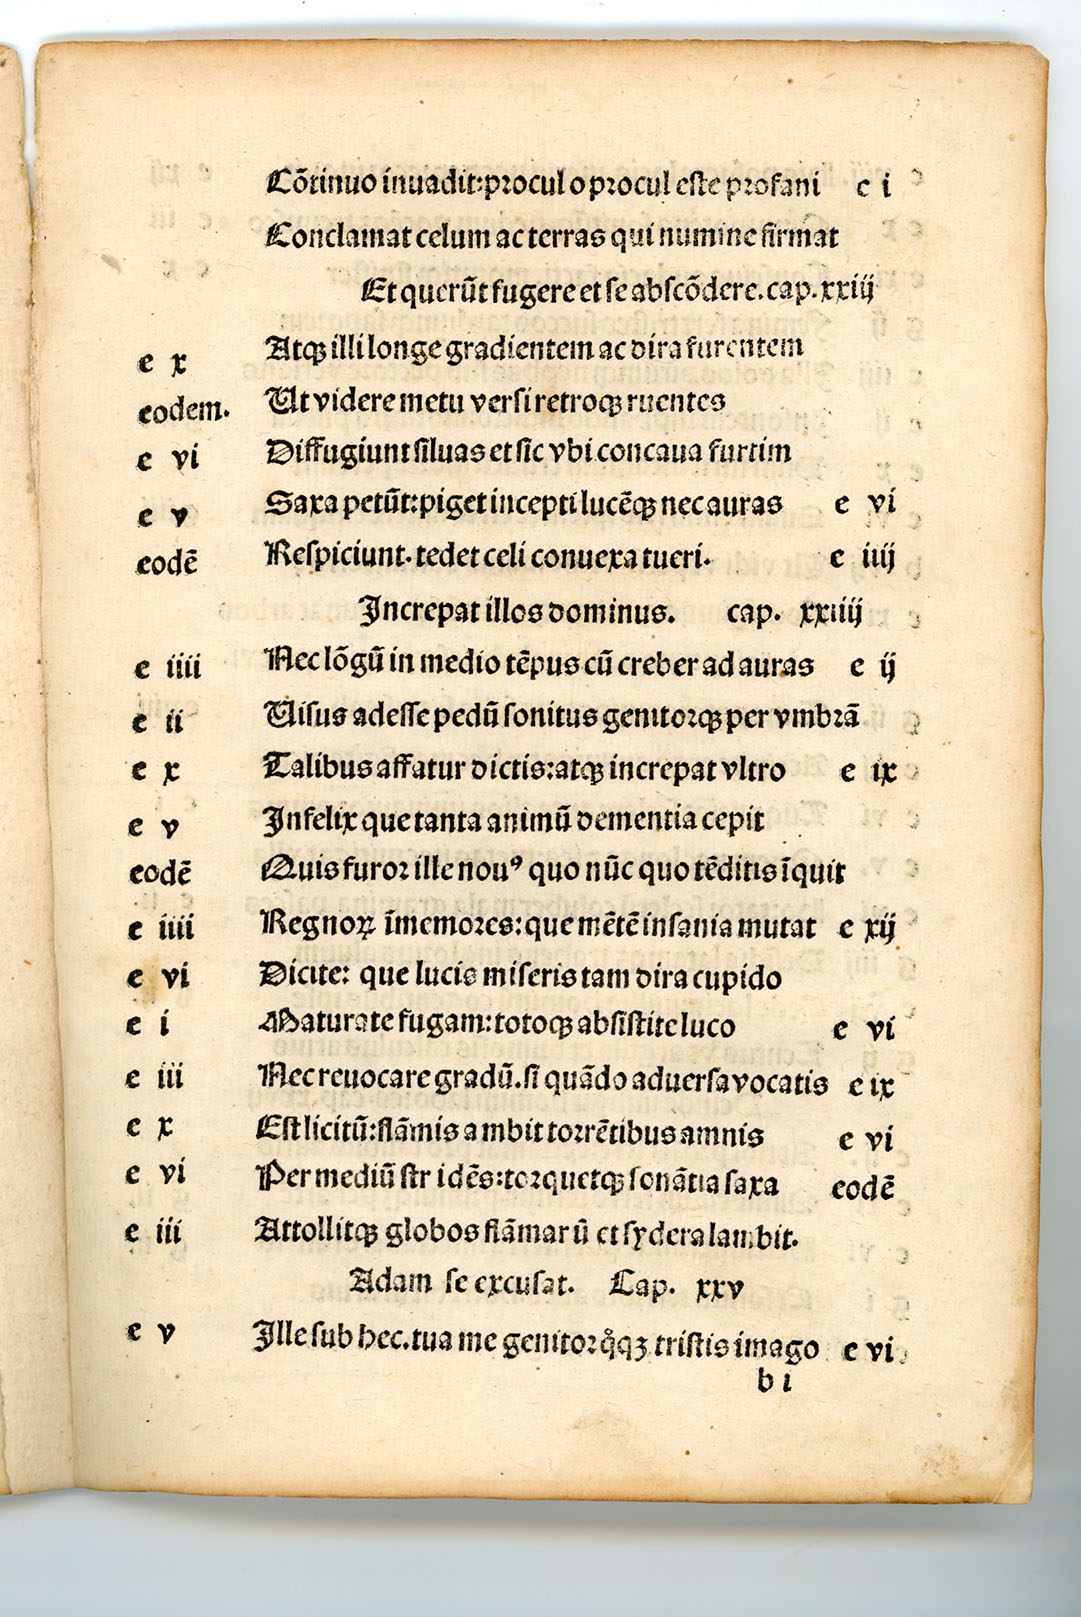 Cōtinuo inuadit:procul o procul este profani e i
Conclamat celum ac terras qui numine firmat
Et querūt fugere et se abscōdere. cap. xxiij
e x Atqꝫ illi longe gradientem ac dira furentem
eodem. Ut videre metu versi retroqꝫ ruentes
e vi Diffugiunt siluas et sic vbi concaua furtim
e v Saxa petūt:piget incepti lucēqꝫ nec auras e vi
eodē Respiciunt. tedet celi conuexa tueri. e iiij
Increpat illos dominus. cap. xxiiij
e iiii Nec lōgū in medio tēpus cū creber ad auras e ij
e ii Uisus adesse pedū sonitus genitorqꝫ per vmbrā
e x Talibus affatur dictis:atqꝫ increpat vltro e ix
e v Infelix que tanta animū dementia cepit
eodē Quis furor ille nouꝰ quo nūc quo tēditis īquit
e iiii Regnoꝝ īmemores:que mētē insania mutat e xij
e vi Dicite: que lucis miseris tam dira cupido
e i Maturate fugam:totoqꝫ absistite luco e vi
e iii Nec reuocare gradū. si quādo aduersa vocatis e ix
e x Est licitū:flāmis ambit torrētibus amnis e vi
e vi Per mediū stridēs:torquetqꝫ sonātia saxa eodē
e iii Attollitqꝫ globos flāmarū et sydera lambit.
Adam se excusat. Cap. xxv
e v Ille sub hec. tua me genitor q̊qꝫ tristis imago e vi
b i